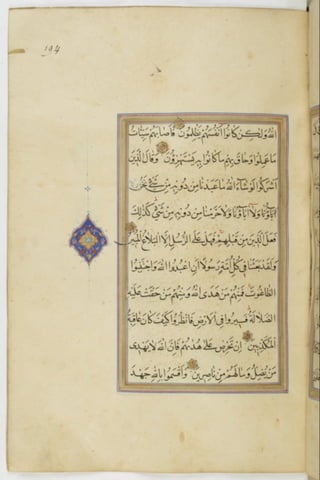 194
الله ولكن كانوا انفسهم يظلمون فاصابهم سيئات
ما عملوا وحاق بهم ما كانوا به يستهزؤن وقال الذين
اشركوا لو شاء الله ما عبدنا من دونه من شئ نحن
ولا اباؤنا ولا حرمنا من دونه من شئ كذلك
فعل الذين من قبلهم فهل على الرسل الا البلاغ المبين
ولقد بعثنا في كل امة رسولا ان اعبدوا الله واجتنبوا
الطاغوت فمنهم من هدى الله ومنهم من حقت عليه
الضلالة فسيروا في الارض فانظروا كيف كان عاقبة
المكذبين ان تحرص على هديهم فان الله لا يهدى
من يضل وما لهم من ناصرين واقسموا بالله جهد